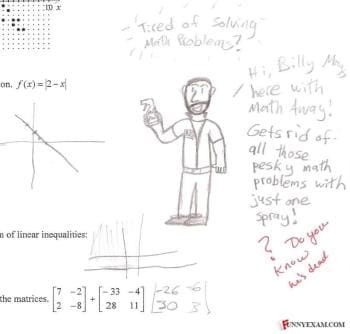 10 x
Tired of Solving
Math Problems?
on. f(x) = |2 – x|
Hi, Billy May
here with
Math Away!
Gets rid of
all those
pesky math
problems with
just one
spray!
? Do you
know
he's dead
n of linear inequalities:
the matrices. [7 -2
2 -8] + [-33 -4
28 11] [-26 -6
30 3]
FUNNYEXAM.COM